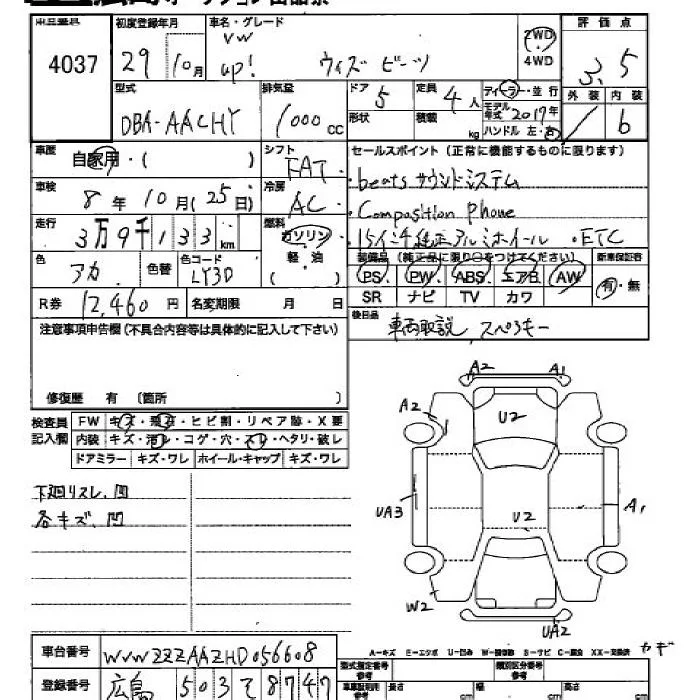 広島オークション出品票
4037
初度登録年月
29 10月
車名・グレード
VW
up! ウィズ ビーツ
2WD
4WD
評価点
3.5
型式
DBA-AACHY
排気量
1000 cc
ドア
5
形状
定員
4人
積載
kg
ディーラー・並行
モデル年式 2017年
ハンドル 左・右
外装 内装
6
車歴
自家用・( )
シフト
FAT
セールスポイント(正常に機能するものに限ります)
・beats サウンドシステム
・Composition Phone
・15インチ純正アルミホイール ・ETC
車検
8年10月(25日)
冷房
AC
走行
3万9千133km
燃料
ガソリン
軽・油
( )
色
アカ
色替
色コード
LY3D
装備品(純正品に限り○をつけてください)
PS PW ABS エアB AW
SR ナビ TV カワ
新車保証書
有・無
R券 12,460円
名変期限 月 日
後日品
車両取説 スペアキー
注意事項申告欄(不具合内容等は具体的に記入して下さい)
修復歴 有 〔箇所 〕
検査員
記入欄
FW キズ・飛石・ヒビ割・リペア跡・X要
内装 キズ・汚レ・コゲ・穴・スレ・ヘタリ・破レ
ドアミラー キズ・ワレ ホイール・キャップ キズ・ワレ
下廻りスレ、凹
各キズ、凹
A2 A1
A2
U2
UA3
U2
A1
W2
UA2
A-キズ E-エクボ U-凹み S-サビ C-腐食 XX-交換済
カギ
車台番号
WVWZZZAAZHD056608
登録番号
広島 503 て 8747
型式指定番号
参考
類別区分番号
参考
長さ cm
幅 cm
高さ cm